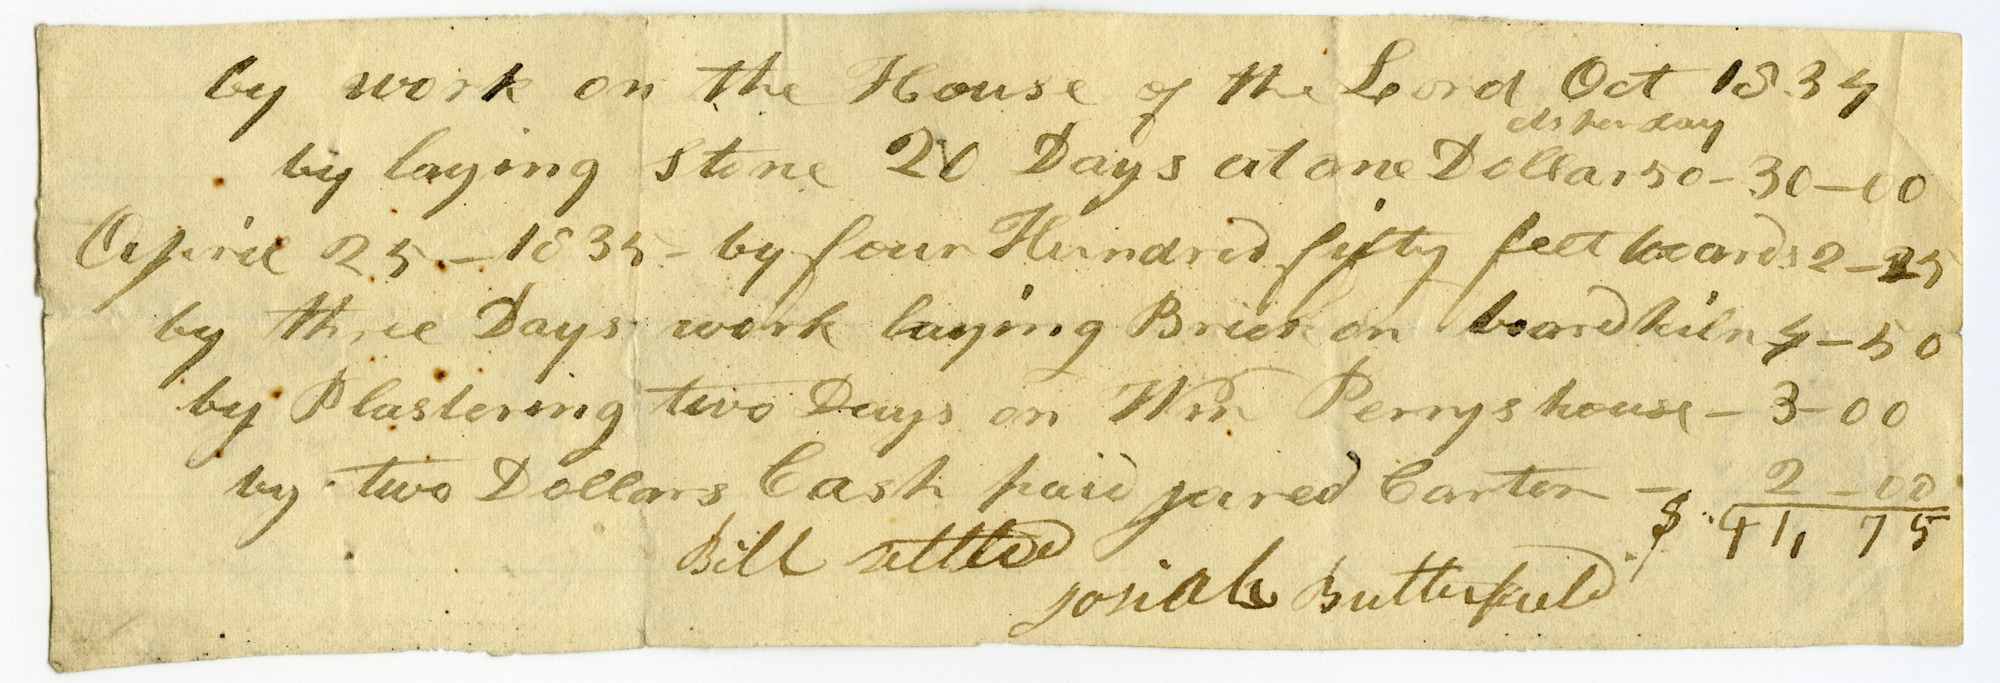 by work on the House of the Lord Oct 1834
cts per day
by laying Stone 20 Days at one Dollar 50 - 30 - 00
April 25 - 1835 - by four Hundred fifty feet boards 2 - 25
by three Days work laying Brick on board kiln 4 - 50
by Plastering two Days on Wm Perrys house - 3 - 00
by two Dollars Cash paid jared Carter - 2 - 00
$ 41, 75
Bill settled
josiah Butterfield